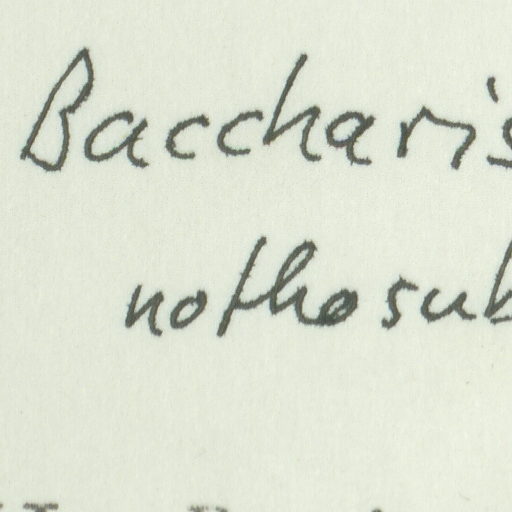 Baccharis
nothosub